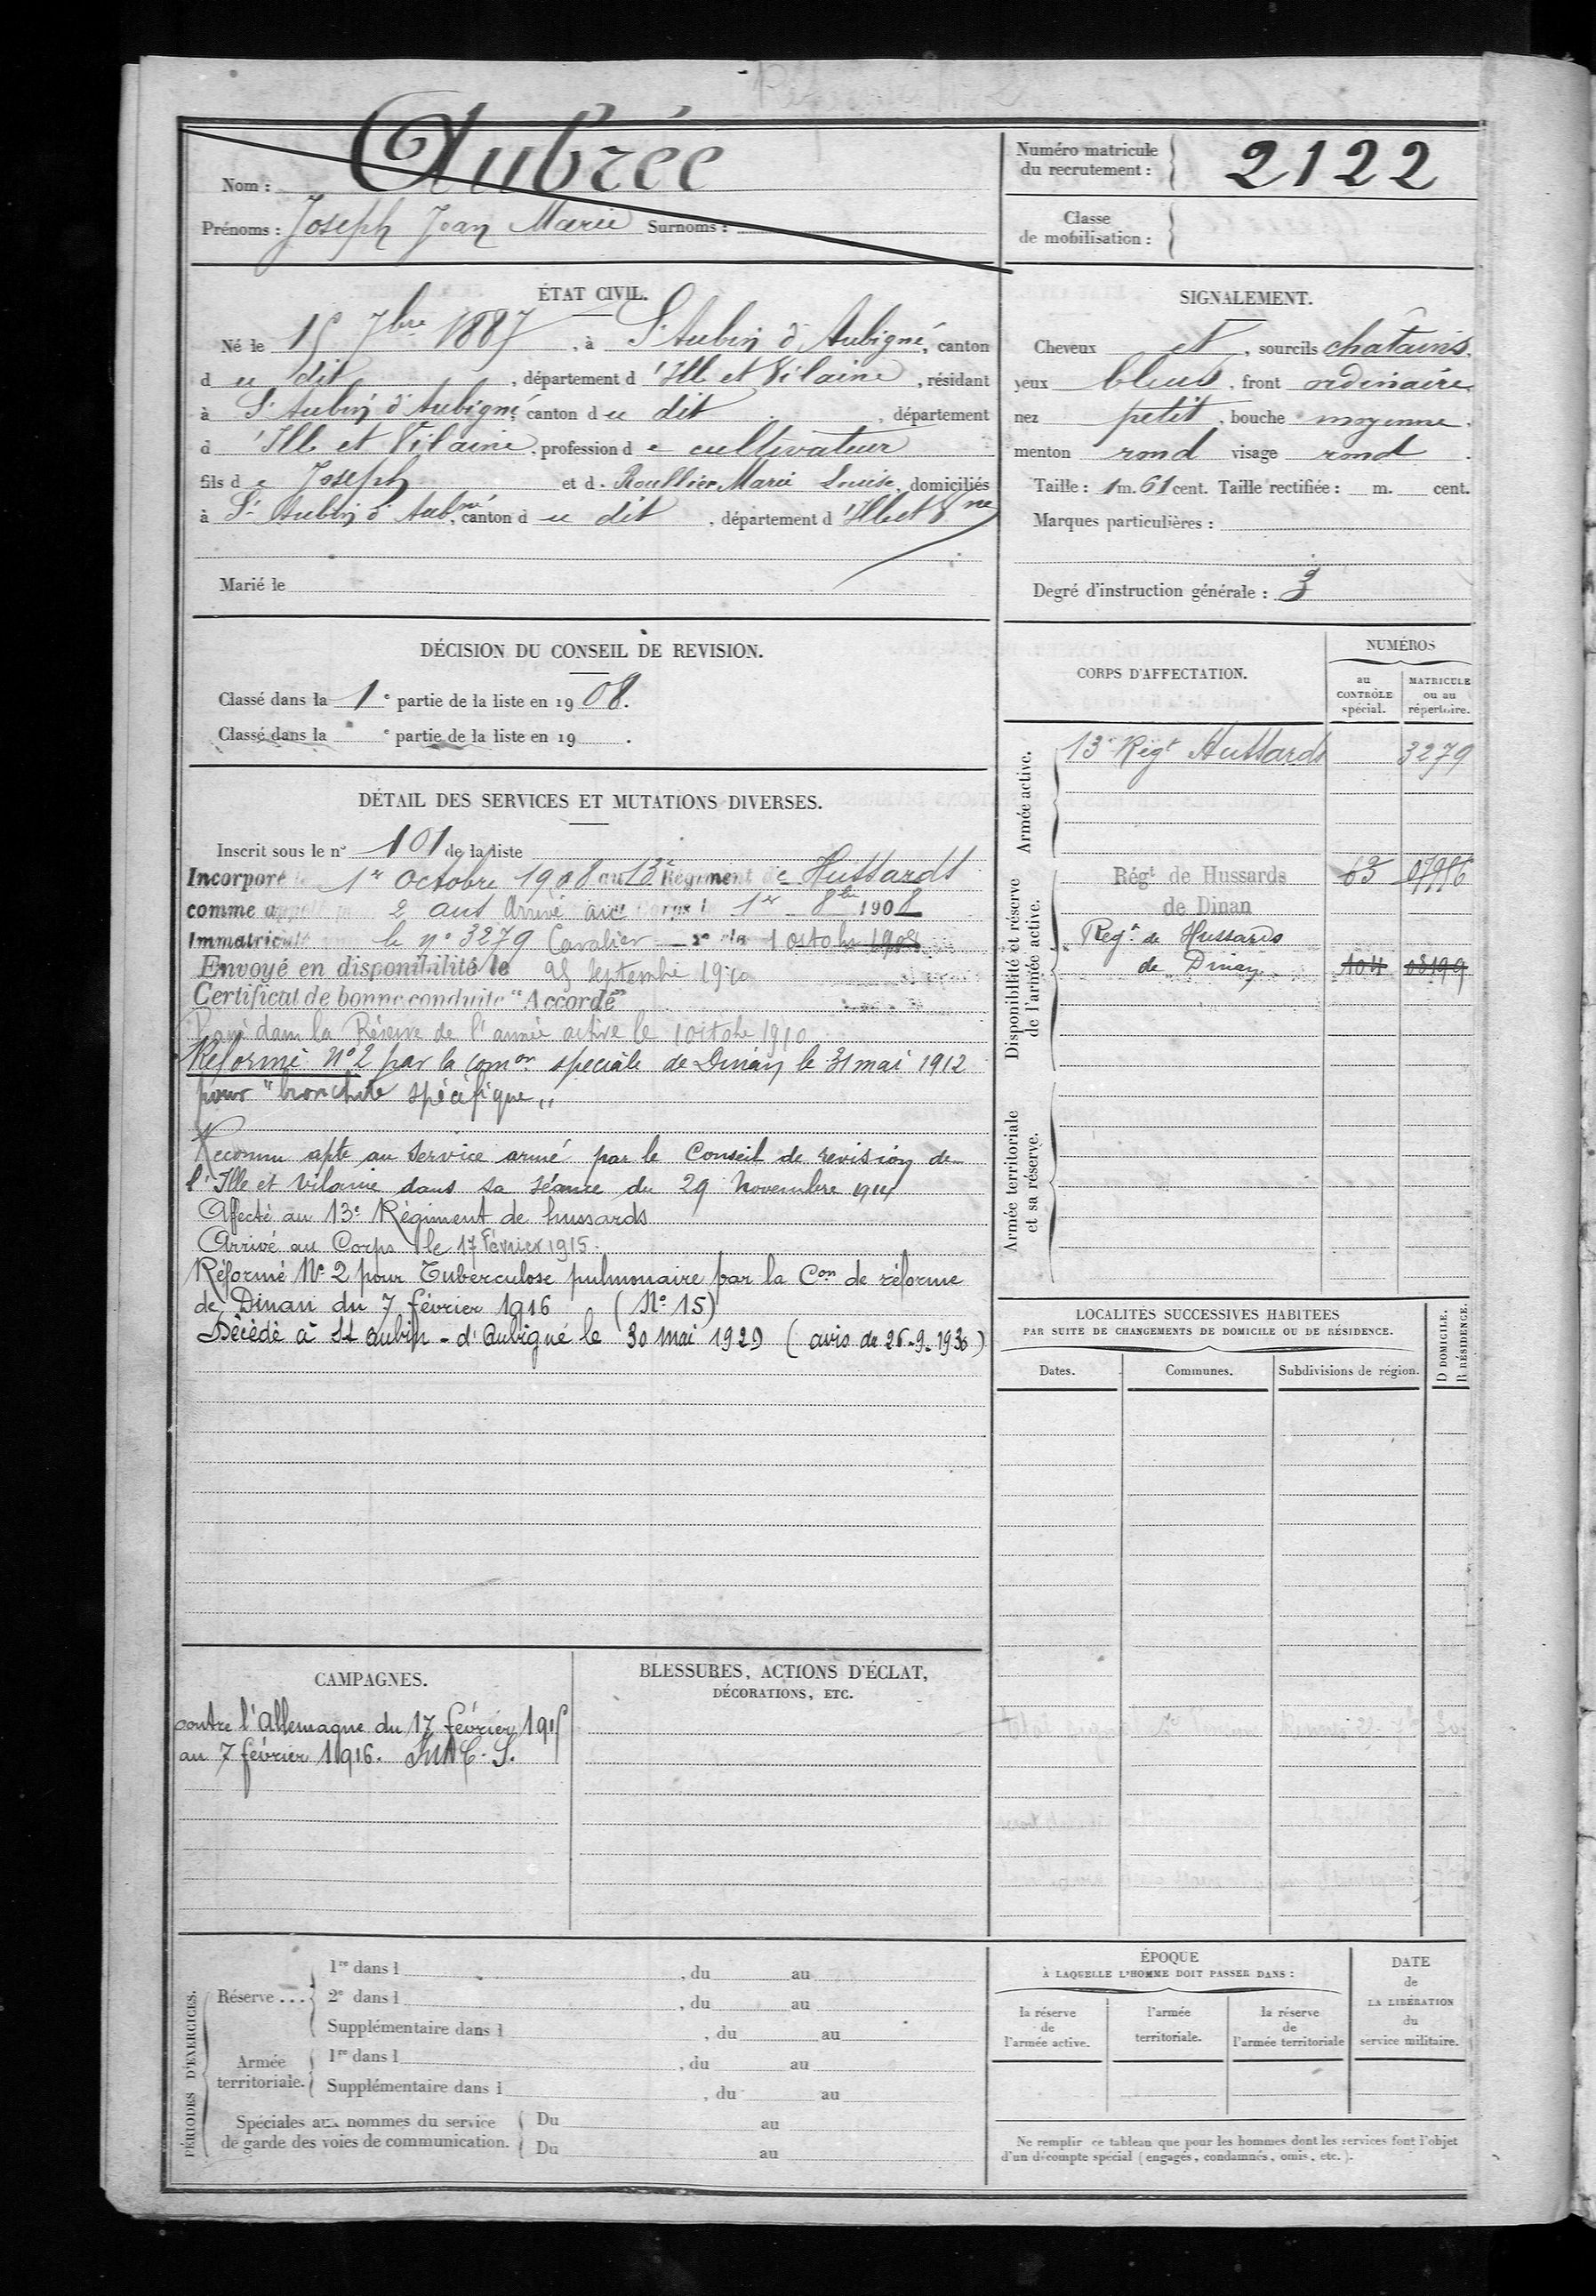 Nom : Aubrée
Prénoms : Joseph Jean Marie Surnoms :
Numéro matricule
du recrutement : 2122
Classe
de mobilisation :
ÉTAT CIVIL.
Né le 15 7bre 1887, à St Aubin d'Aubigné, canton
d u dit, département d'Ille et Vilaine, résidant
à St Aubin d'Aubigné canton du dit, département
d'Ille et Vilaine, profession de cultivateur
fils de Joseph et d. Roullier Marie Louise, domiciliés
à St Aubin d'Aubné, canton du dit, département d'Ille et Vne
Marié le
SIGNALEMENT.
Cheveux et, sourcils châtains,
yeux bleus, front ordinaire,
nez petit, bouche moyenne,
menton rond visage rond.
Taille : 1 m. 61 cent. Taille rectifiée : m. cent.
Marques particulières :
Degré d'instruction générale : 3
DÉCISION DU CONSEIL DE REVISION.
Classé dans la 1e partie de la liste en 1908.
Classé dans la e partie de la liste en 19 .
DÉTAIL DES SERVICES ET MUTATIONS DIVERSES.
Inscrit sous le n° 101 de la liste
Incorporé le 1er Octobre 1908 au 13e Régiment de Hussards
comme appelé pour 2 ans Arrivé au corps le 1er 8bre 1908
Immatriculé sous le n° 3279 Cavalier de 2e cl 1 octobre 1908
Envoyé en disponibilité le 25 septembre 1910
Certificat de bonne conduite "Accordé"
Passé dans la Réserve de l'armée active le 1 octobre 1910
Réformé N° 2 par la comon spéciale de Dinan le 31 mai 1912
pour "bronchite spécifique"
Reconnu apte au service armé par le Conseil de revision de
l'Ille et Vilaine dans sa séance du 29 Novembre 1914
Affecté au 13e Régiment de hussards
Arrivé au Corps le 17 Février 1915.
Réformé N° 2 pour Tuberculose pulmonaire par la Con de réforme
de Dinan du 7 février 1916 (N° 15)
Décédé à St aubin-d'Aubigné le 30 mai 1929 (avis de 26-9-1930)
CORPS D'AFFECTATION.
NUMÉROS
au
CONTRÔLE
spécial.
MATRICULE
ou au
répertoire.
Armée active.
13e Régt Hussards 3279
Disponibilité et réserve
de l'armée active.
Régt de Hussards 63
de Dinan
Régt de Hussards
de Dinan 104 03199
Armée territoriale
et sa réserve.
LOCALITÉS SUCCESSIVES HABITÉES
PAR SUITE DE CHANGEMENTS DE DOMICILE OU DE RÉSIDENCE.
Dates.
Communes.
Subdivisions de région.
D DOMICILE.
R RÉSIDENCE.
CAMPAGNES.
contre l'Allemagne du 17 février 1915
au 7 février 1916.
BLESSURES, ACTIONS D'ÉCLAT,
DÉCORATIONS, ETC.
PÉRIODES D'EXERCICES.
Réserve ...
1re dans l , du au
2e dans l , du au
Supplémentaire dans l , du au
Armée
territoriale.
1re dans l , du au
Supplémentaire dans l , du au
Spéciales aux hommes du service
de garde des voies de communication.
Du au
Du au
ÉPOQUE
À LAQUELLE L'HOMME DOIT PASSER DANS :
la réserve
de
l'armée active.
l'armée
territoriale.
la réserve
de
l'armée territoriale
DATE
de
LA LIBÉRATION
du
service militaire.
Ne remplir ce tableau que pour les hommes dont les services font l'objet
d'un décompte spécial (engagés, condamnés, omis, etc.).